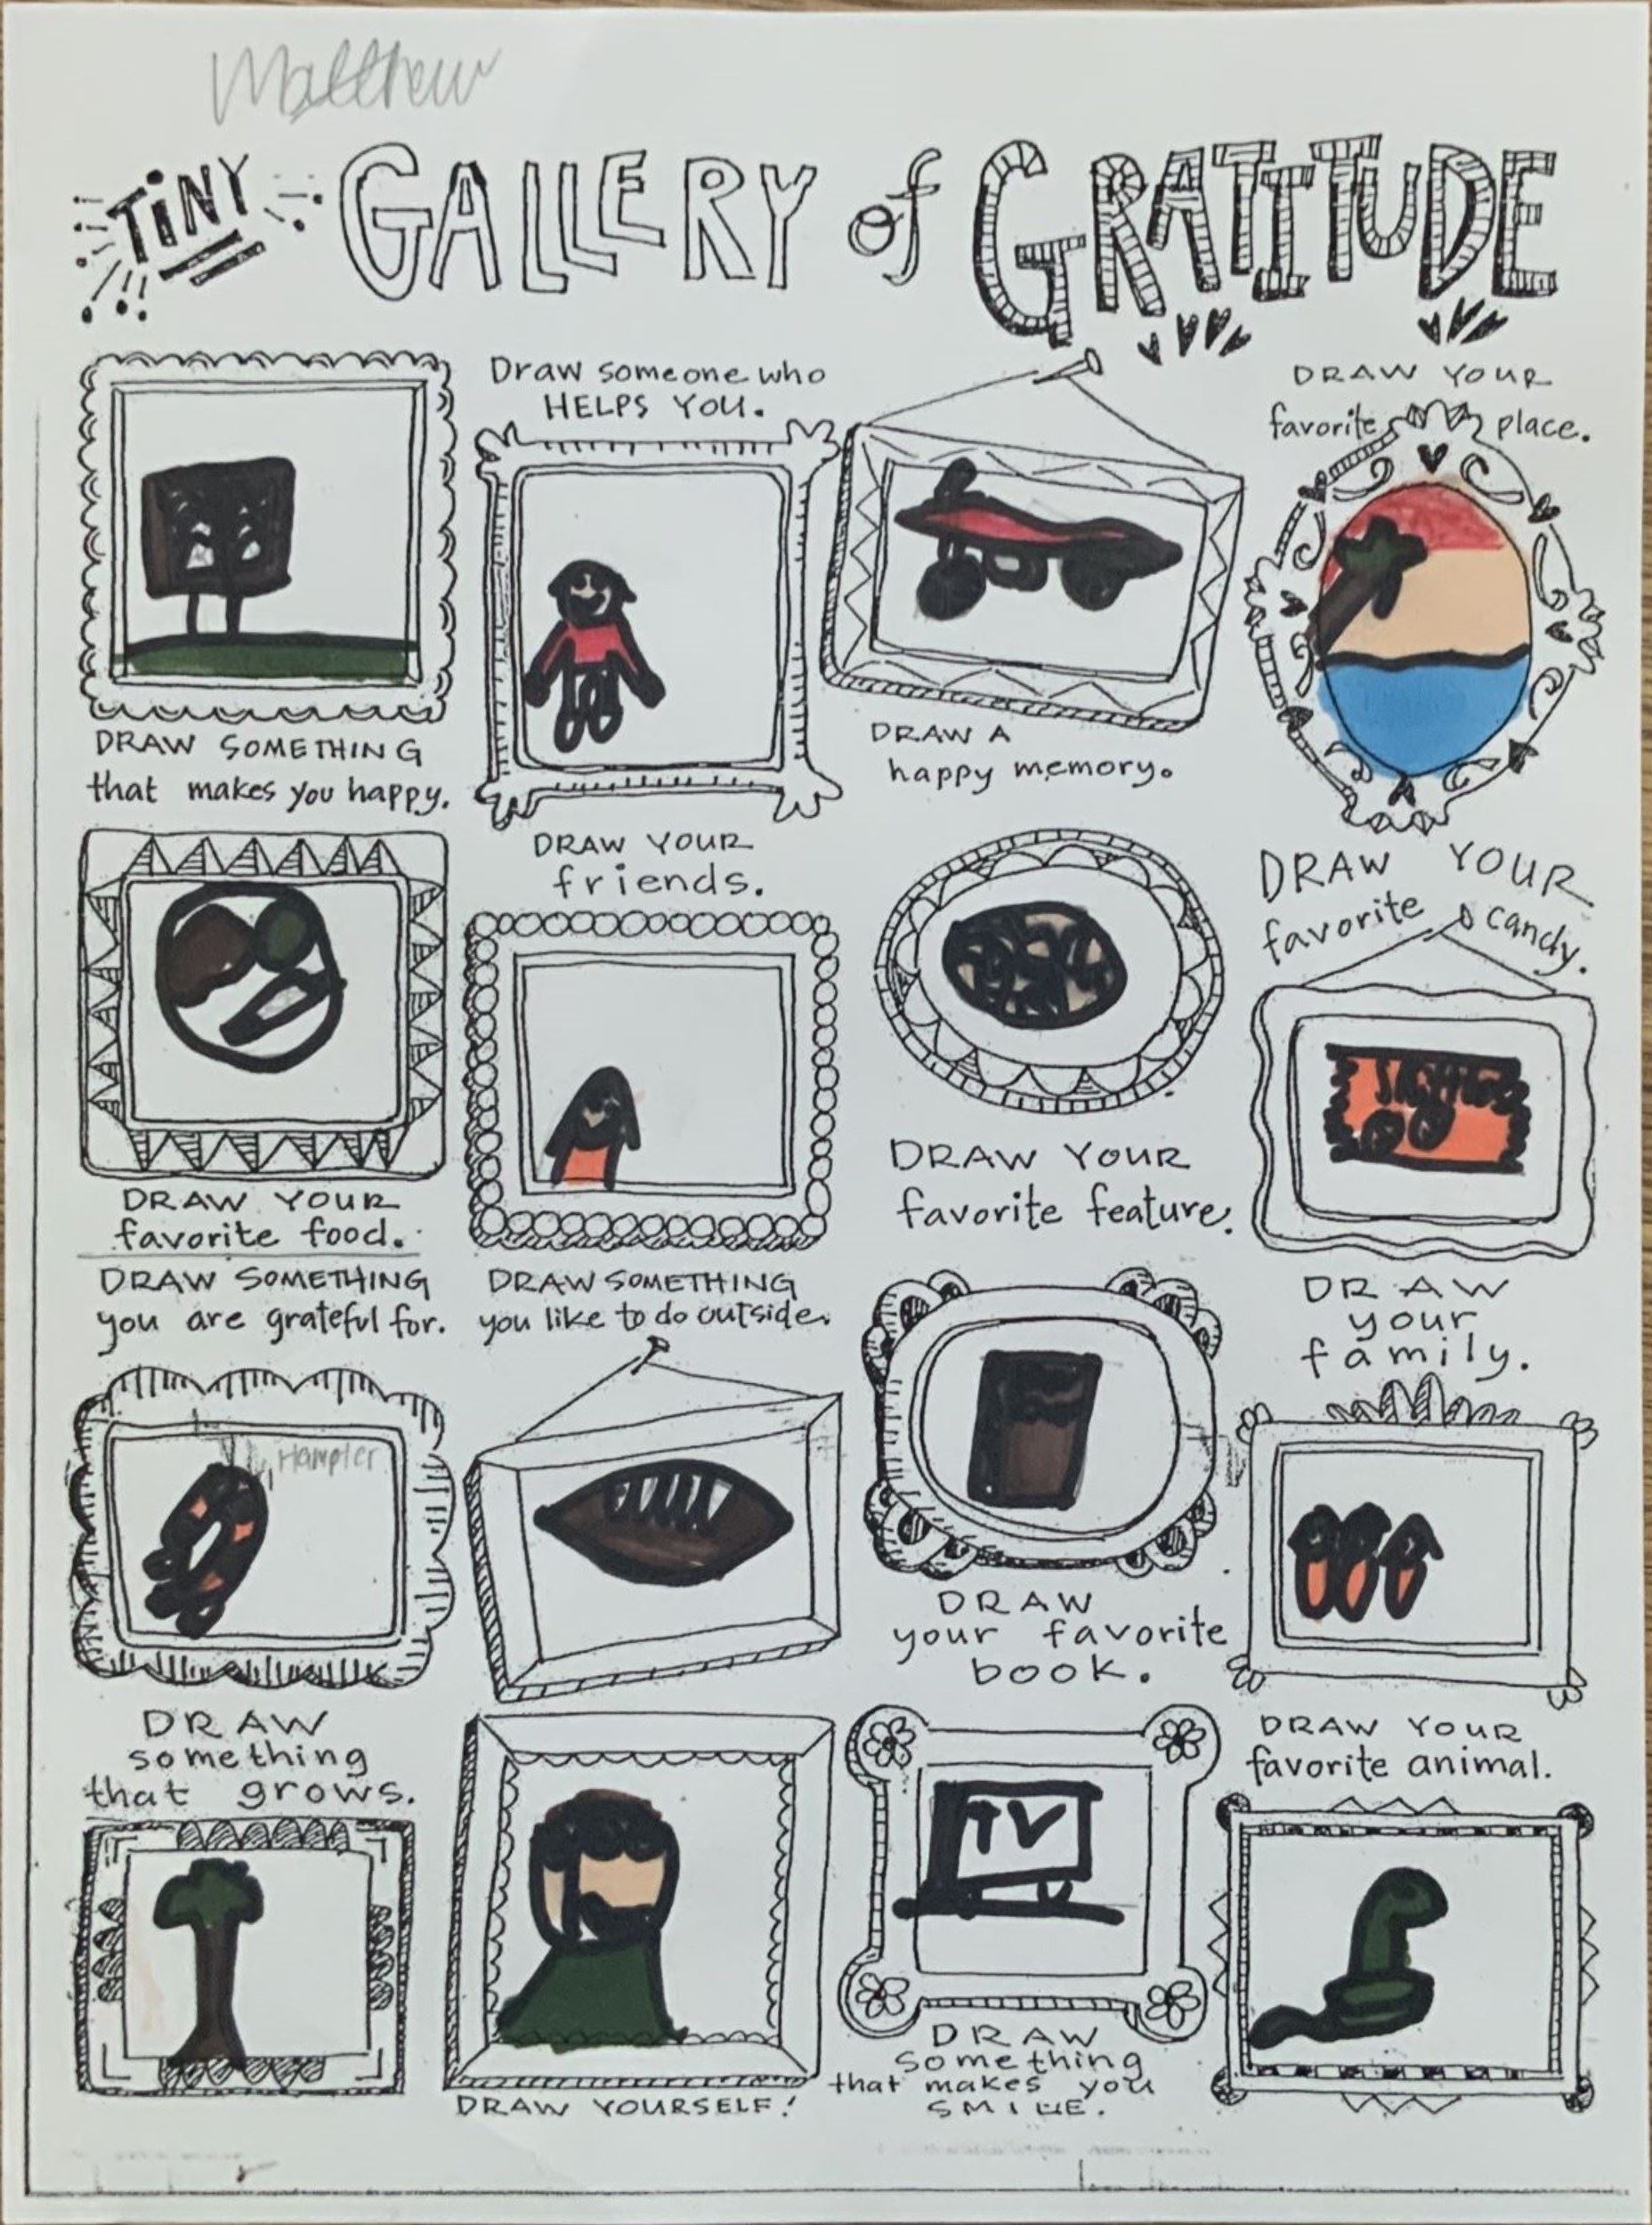 Matthew
TINY GALLERY of GRATITUDE
DRAW SOMETHING
that makes you happy.
Draw someone who
HELPS YOU.
DRAW A
happy memory.
DRAW YOUR
favorite place.
DRAW YOUR
favorite food.
DRAW YOUR
friends.
DRAW YOUR
favorite feature.
DRAW YOUR
favorite candy.
DRAW SOMETHING
you are grateful for.
Hampter
DRAW SOMETHING
you like to do outside.
DRAW
your favorite
book.
DRAW
your
family.
DRAW
something
that grows.
DRAW YOURSELF!
TV
DRAW
something
that makes you
SMILE.
DRAW YOUR
favorite animal.